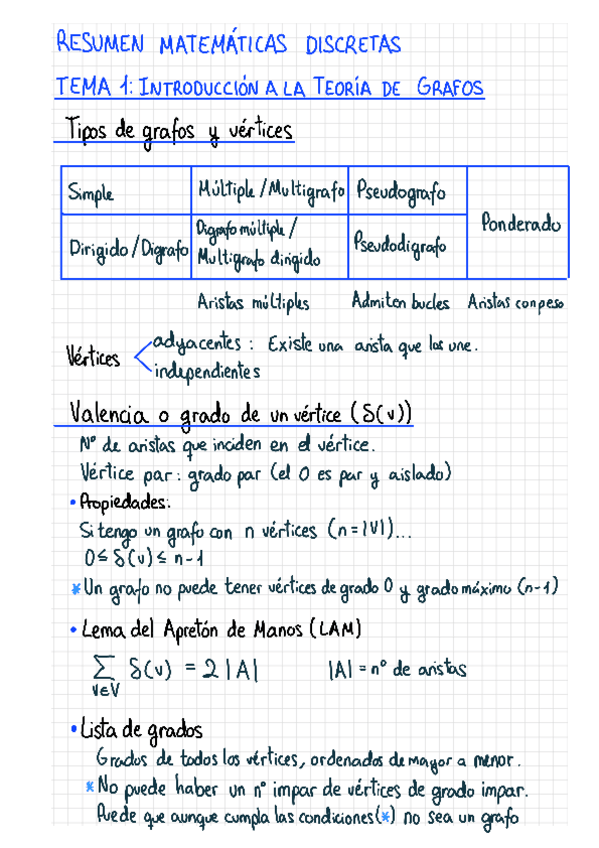 RESUMEN MATEMÁTICAS DISCRETAS
TEMA 1: INTRODUCCIÓN A LA TEORÍA DE GRAFOS
Tipos de grafos y vértices
Simple
Múltiple / Multigrafo
Pseudografo
Ponderado
Dirigido / Digrafo
Digrafo múltiple /
Multigrafo dirigido
Pseudodigrafo
Aristas múltiples
Admiten bucles
Aristas con peso
Vértices
adyacentes : Existe una arista que los une.
independientes
Valencia o grado de un vértice (δ(v))
Nº de aristas que inciden en el vértice.
Vértice par : grado par (el 0 es par y aislado)
• Propiedades:
Si tengo un grafo con n vértices (n=|V|)...
0≤ δ(v) ≤ n-1
* Un grafo no puede tener vértices de grado 0 y grado máximo (n-1)
• Lema del Apretón de Manos (LAM)
∑ δ(v) = 2|A| |A| = nº de aristas
v∈V
• Lista de grados
Grados de todos los vértices, ordenados de mayor a menor.
* No puede haber un nº impar de vértices de grado impar.
Puede que aunque cumpla las condiciones(*) no sea un grafo